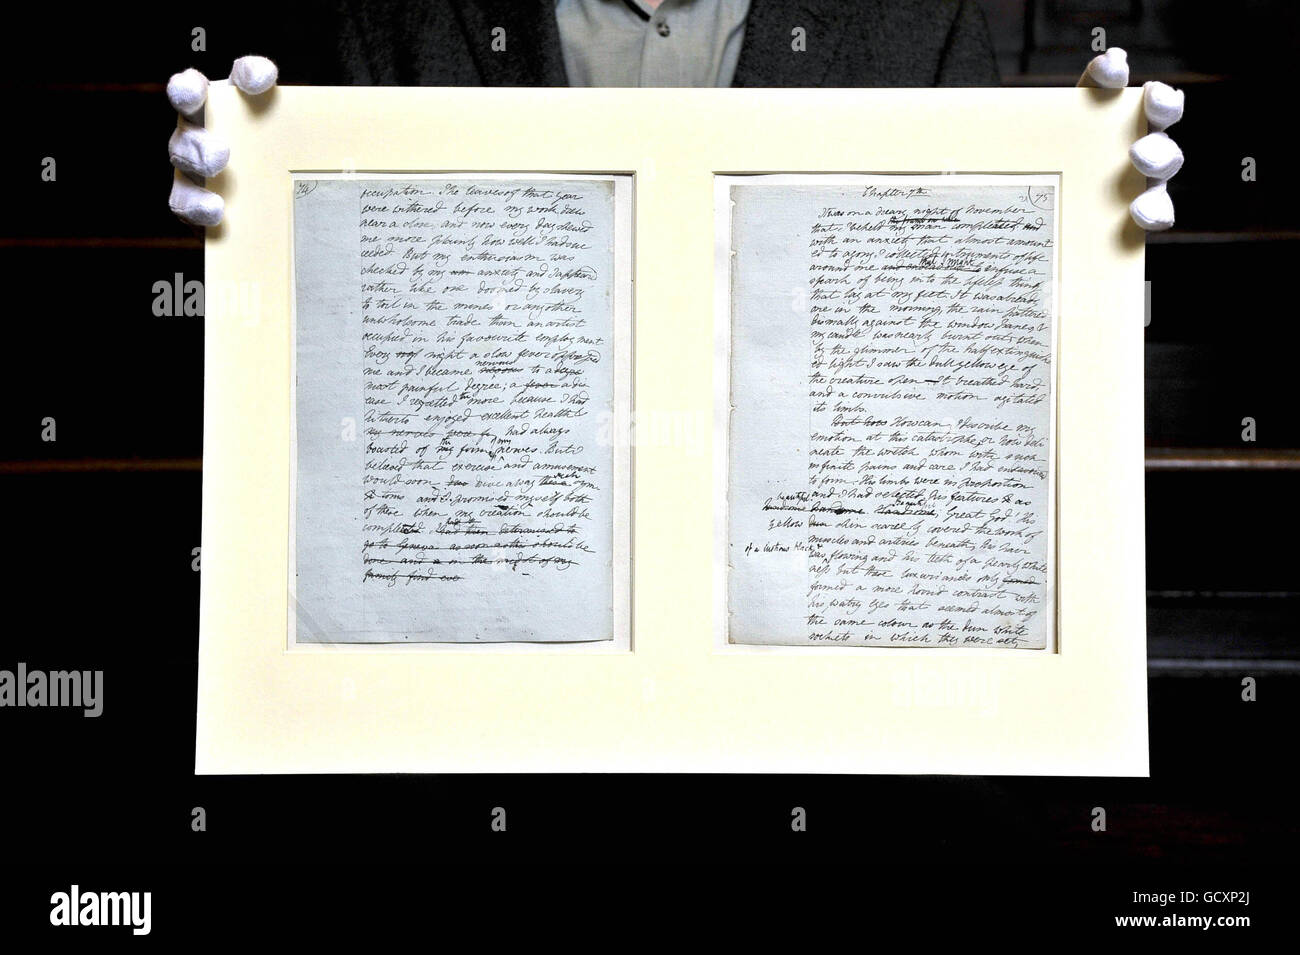 74
occupation. The leaves of that year
were withered before my work drew
near a close, and now every day shewed
me more plainly how well I had suc
ceeded. But my enthusiasm was
checked by my anxiety and I appeared
rather like one doomed by slavery
to toil in the mines or any other
unwholsome trade than an artist
occupied in his favourite employment
Every night a slow fever oppressed
me and I became nervous to a
most painful degree; a fever a dis
ease I regretted the more because I had
hitherto enjoyed excellent health &
my nerves were had always
boasted of the firmness of my nerves. But I
believed that exercise and amusement
would soon drive away such
symptoms and I promised myself both
of these when my creation should be
completed. I had then determined to
go to Geneva as soon as this should be
done and in the midst of my
family find
Chapter 7th
75
It was on a dreary night of November
that I beheld my man completed and
with an anxiety that almost amount
ed to agony I collected instruments of life
around me that I might infuse a
spark of being into the lifeless thing
that lay at my feet. It was already
one in the morning, the rain pattered
dismally against the window panes &
my candle was nearly burnt out, when
by the glimmer of the half extinguish
ed light I saw the dull yellow eye of
the creature open – It breathed hard
and a convulsive motion agitated
its limbs.
But how How can I describe my
emotion at this catastrophe; or how deli
neate the wretch whom with such
infinite pains and care I had endeavoured
to form. His limbs were in proportion
and I had selected his features as
beautiful handsome Handsome Beautiful; Great God! His
yellow dun skin scarcely covered the work of
muscles and arteries beneath; his hair
of a lustrous black & was flowing and his teeth of a pearly white
ness but these luxuriances only
formed a more horrid contrast with
his watry eyes that seemed almost of
the same colour as the dun white
sockets in which they were set,
alamy
alamy
Image ID: GCXP2J
www.alamy.com